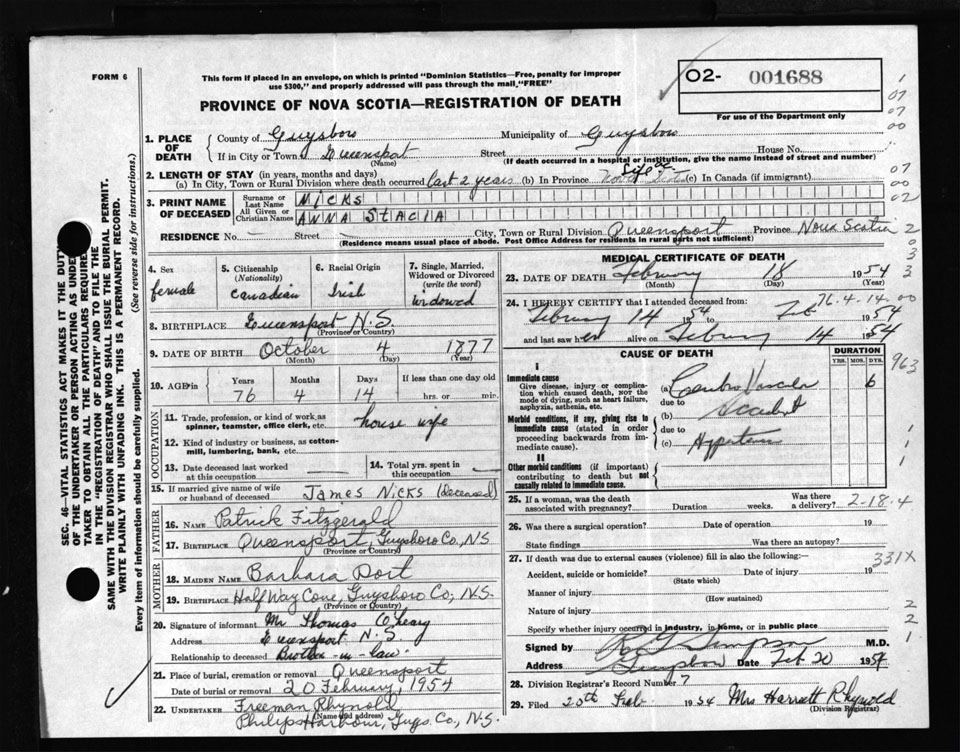 FORM 6
This form if placed in an envelope, on which is printed "Dominion Statistics—Free, penalty for improper
use $300," and properly addressed will pass through the mail, "FREE"
PROVINCE OF NOVA SCOTIA—REGISTRATION OF DEATH
O2- 001688
For use of the Department only
1. PLACE OF DEATH
County of Guysboro Municipality of Guysboro
If in City or Town Queensport Street House No.
(Name) (If death occurred in a hospital or institution, give the name instead of street and number)
2. LENGTH OF STAY (in years, months and days)
(a) In City, Town or Rural Division where death occurred last 2 years (b) In Province Life (c) In Canada (if immigrant)
3. PRINT NAME OF DECEASED
Surname or Last Name NICKS
All Given or Christian Names ANNA STACIA
RESIDENCE No. — Street — City, Town or Rural Division Queensport Province Nova Scotia
(Residence means usual place of abode. Post Office Address for residents in rural parts not sufficient)
4. Sex female
5. Citizenship (Nationality) Canadian
6. Racial Origin Irish
7. Single, Married, Widowed or Divorced (write the word) Widowed
8. BIRTHPLACE Queensport N.S.
(Province or Country)
9. DATE OF BIRTH October 4 1877
(Month) (Day) (Year)
10. AGE in Years Months Days If less than one day old
76 4 14 hrs. or min.
OCCUPATION
11. Trade, profession, or kind of work, as
spinner, teamster, office clerk, etc. house wife
12. Kind of industry or business, as cotton-
mill, lumbering, bank, etc.
13. Date deceased last worked
at this occupation —
14. Total yrs. spent in
this occupation —
15. If married give name of wife
or husband of deceased James Nicks (deceased)
FATHER
16. NAME Patrick Fitzgerald
17. BIRTHPLACE Queensport, Guysboro Co., N.S.
(Province or Country)
MOTHER
18. MAIDEN NAME Barbara Port
19. BIRTHPLACE Half Way Cove, Guysboro Co., N.S.
(Province or Country)
20. Signature of informant Mr Thomas O'Leary
Address Queensport N.S
Relationship to deceased Brother-in-law
21. Place of burial, cremation or removal Queensport
Date of burial or removal 20 February, 1954
22. UNDERTAKER Freeman Rhynold
(Name and address)
Philips Harbour, Guys. Co., N.S.
MEDICAL CERTIFICATE OF DEATH
23. DATE OF DEATH February 18 1954
(Month) (Day) (Year)
24. I HEREBY CERTIFY that I attended deceased from:
February 14 1954 to Feb 1954
76.4.14.00
and last saw her alive on February 14 1954
CAUSE OF DEATH
DURATION
YRS. MOS. DYS.
I
Immediate cause
Give disease, injury or complica-
tion which caused death, not the
mode of dying, such as heart failure,
asphyxia, asthenia, etc.
(a) Cerebro Vascular 6
due to Accident
Morbid conditions, if any, giving rise to
immediate cause (stated in order
proceeding backwards from im-
mediate cause).
(b)
due to
(c) Hypertens
II
Other morbid conditions (if important)
contributing to death but not
causally related to immediate cause.
25. If a woman, was the death
associated with pregnancy? Duration weeks. Was there a delivery? 2-18-4
26. Was there a surgical operation? Date of operation 19
State findings Was there an autopsy?
27. If death was due to external causes (violence) fill in also the following:—
331X
Accident, suicide or homicide? Date of injury 19
(State which)
Manner of injury
(How sustained)
Nature of injury
Specify whether injury occurred in industry, in home, or in public place
Signed by M.D.
Address Date Feb 20 1954
28. Division Registrar's Record Number 7
29. Filed 20th Feb 1954 Mrs Harriett Rhynold
(Division Registrar)
SEC. 46—VITAL STATISTICS ACT MAKES IT THE DUTY
OF THE UNDERTAKER OR PERSON ACTING AS UNDER-
TAKER TO OBTAIN ALL THE PARTICULARS REQUIRED
IN THE "REGISTRATION OF DEATH" AND TO FILE THE
SAME WITH THE DIVISION REGISTRAR WHO SHALL ISSUE THE BURIAL PERMIT.
WRITE PLAINLY WITH UNFADING INK. THIS IS A PERMANENT RECORD.
Every item of information should be carefully supplied. (See reverse side for instructions.)
1
07
07
00
07
00
02
2
0
3
3
963
1
1
1
2
2
1